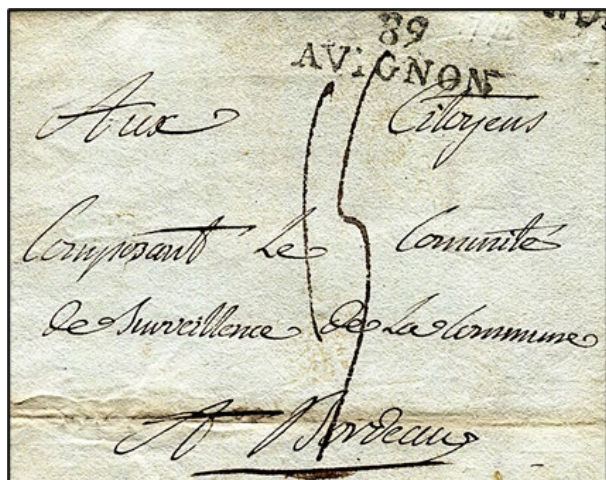 89
AVIGNON
Aux Citoyens
15
Composant Le Comunité
de Surveillence de La Commune
A Bordeaux